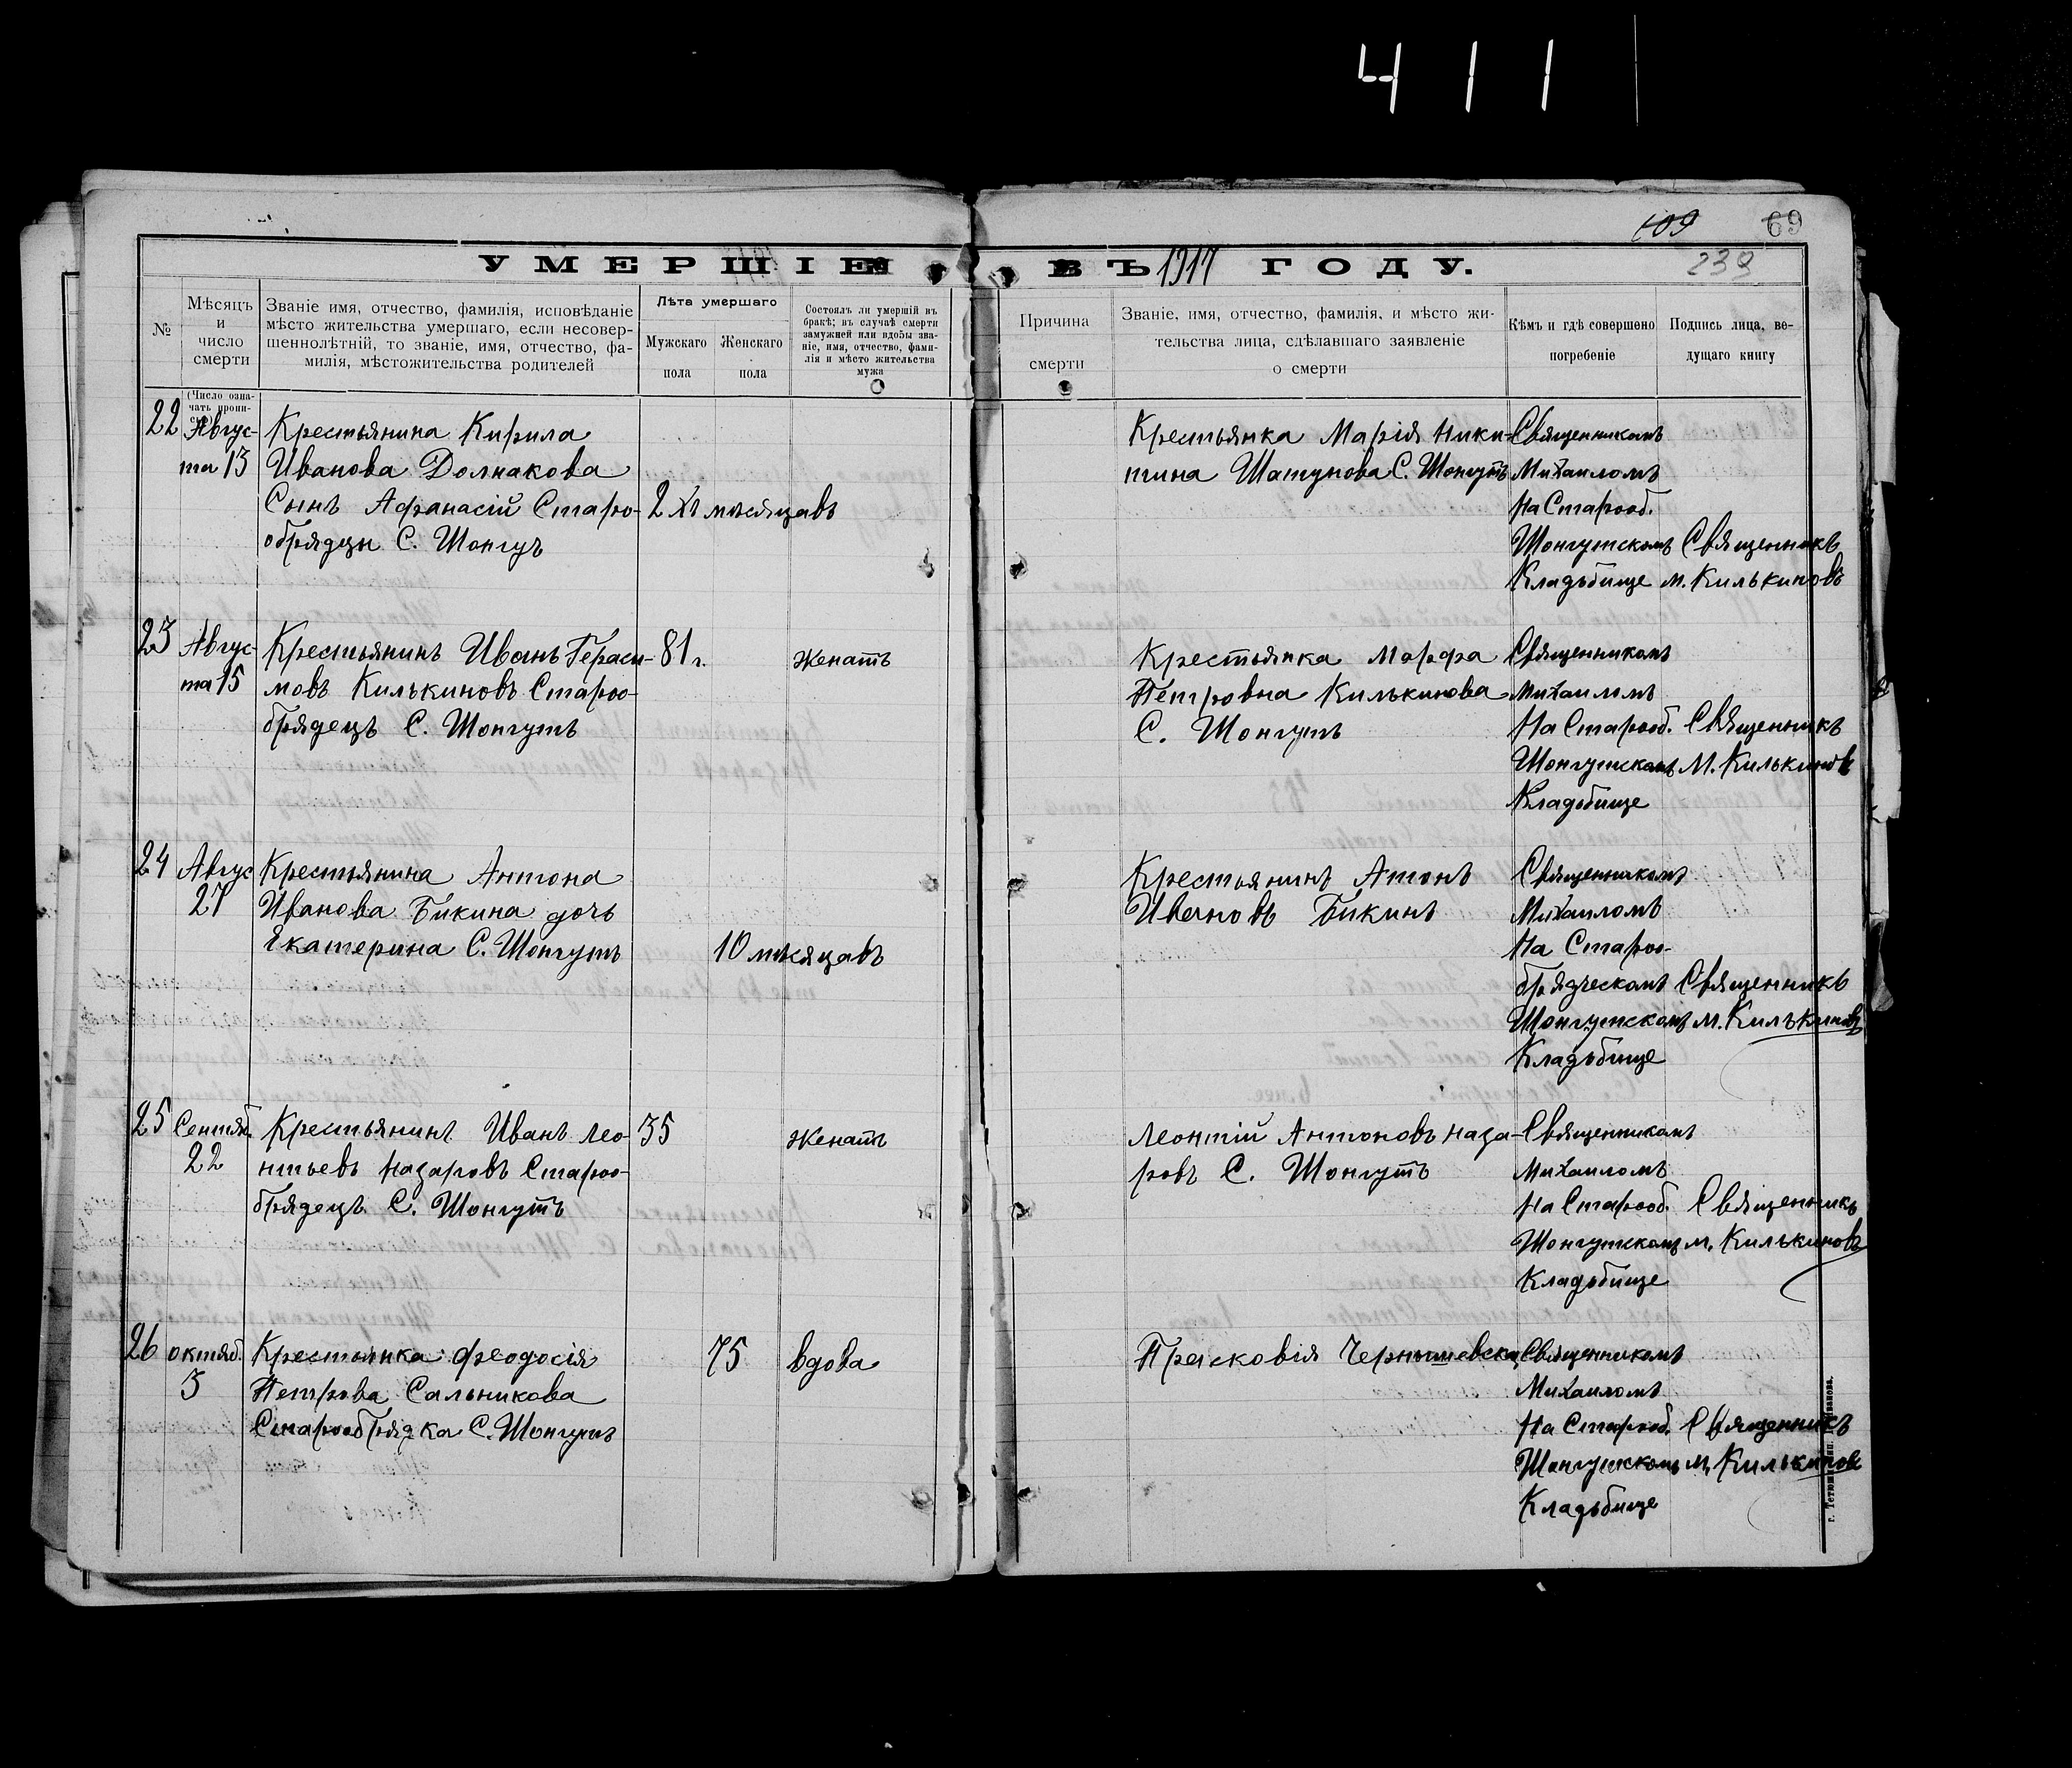 411
109 69
УМЕРШІЕ ВЪ 1917 ГОДУ.
239
№
Мѣсяцъ
и
число
смерти
Званіе имя, отчество, фамилія, исповѣданіе
мѣсто жительства умершаго, если несовер-
шеннолѣтній, то званіе, имя, отчество, фа-
милія, мѣстожительства родителей
Лѣта умершаго
Мужскаго
пола
Женскаго
пола
Состоялъ ли умершій въ
бракѣ; въ случаѣ смерти
замужней или вдовы зва-
ніе, имя, отчество, фами-
лія и мѣсто жительства
мужа
Причина
смерти
Званіе, имя, отчество, фамилія, и мѣсто жи-
тельства лица, сдѣлавшаго заявленіе
о смерти
Кѣмъ и гдѣ совершено
погребеніе
Подпись лица, ве-
дущаго книгу
(Число озна-
чать пропи-
22
Авгус-
та 13
Крестьянина Кирила
Иванова Долнакова
Сынъ Афанасій Старо-
обрядцы С. Шонгуъ
2хъ мѣсяцавъ
Крестьянка Марія Ники-
тина Шатунова С. Шонгутъ
Священникомъ
Михаиломъ
На Старооб.
Шонгутскомъ
Кладьбище
Священникъ
М. Килькиновъ
23
Авгус-
та 15
Крестьянинъ Иванъ Гераси-
мовъ Килькиновъ Староо-
брядецъ С. Шонгутъ
81 г.
женатъ
Крестьянка Марфа
Петровна Килькинова
С. Шонгутъ
Священникомъ
Михаиломъ
На Старооб.
Шонгутскомъ
Кладбище
Священникъ
М. Килькиновъ
24
Авгус
27
Крестьянина Антона
Иванова Бикина дочь
Екатерина С. Шонгутъ
10 мѣсяцавъ
Крестьянинъ Атонъ
Ивановъ Бикинъ
Священникомъ
Михаиломъ
На Староо-
брядческомъ
Шонгутскомъ
Кладьбище
Священникъ
М. Килькиновъ
25
Сентяб.
22
Крестьянинъ Иванъ Лео-
нтьевъ Назаровъ Староо-
брядецъ С. Шонгутъ
35
женатъ
Леонтій Антоновъ Наза-
ровъ С. Шонгутъ
Священникомъ
Михаиломъ
На Старооб.
Шонгутскомъ
Кладьбище
Священникъ
М. Килькиновъ
26
октяб.
3
Крестьянка Феодосія
Петрова Сальникова
Старообрядка С. Шонгутъ
75
вдова
Прасковія Чернышевска
Священникомъ
Михаиломъ
На Старооб.
Шонгутскомъ
Кладьбище
Священникъ
М. Килькиновъ